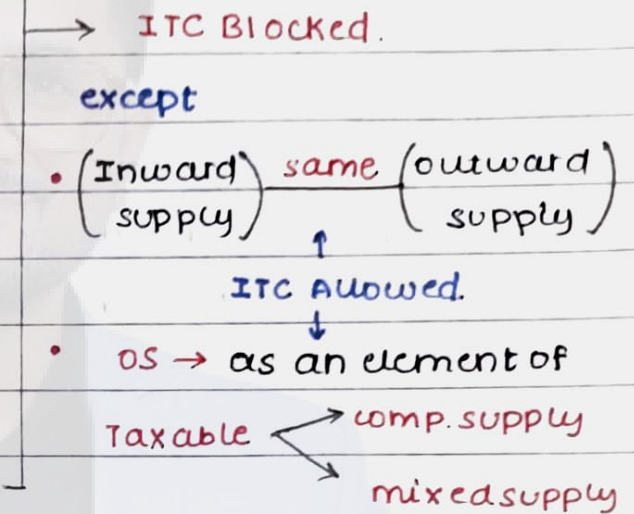 → ITC Blocked.
except
• (Inward supply) same (outward supply)
↑
ITC Allowed.
↓
• OS → as an element of
Taxable → comp. supply
→ mixed supply